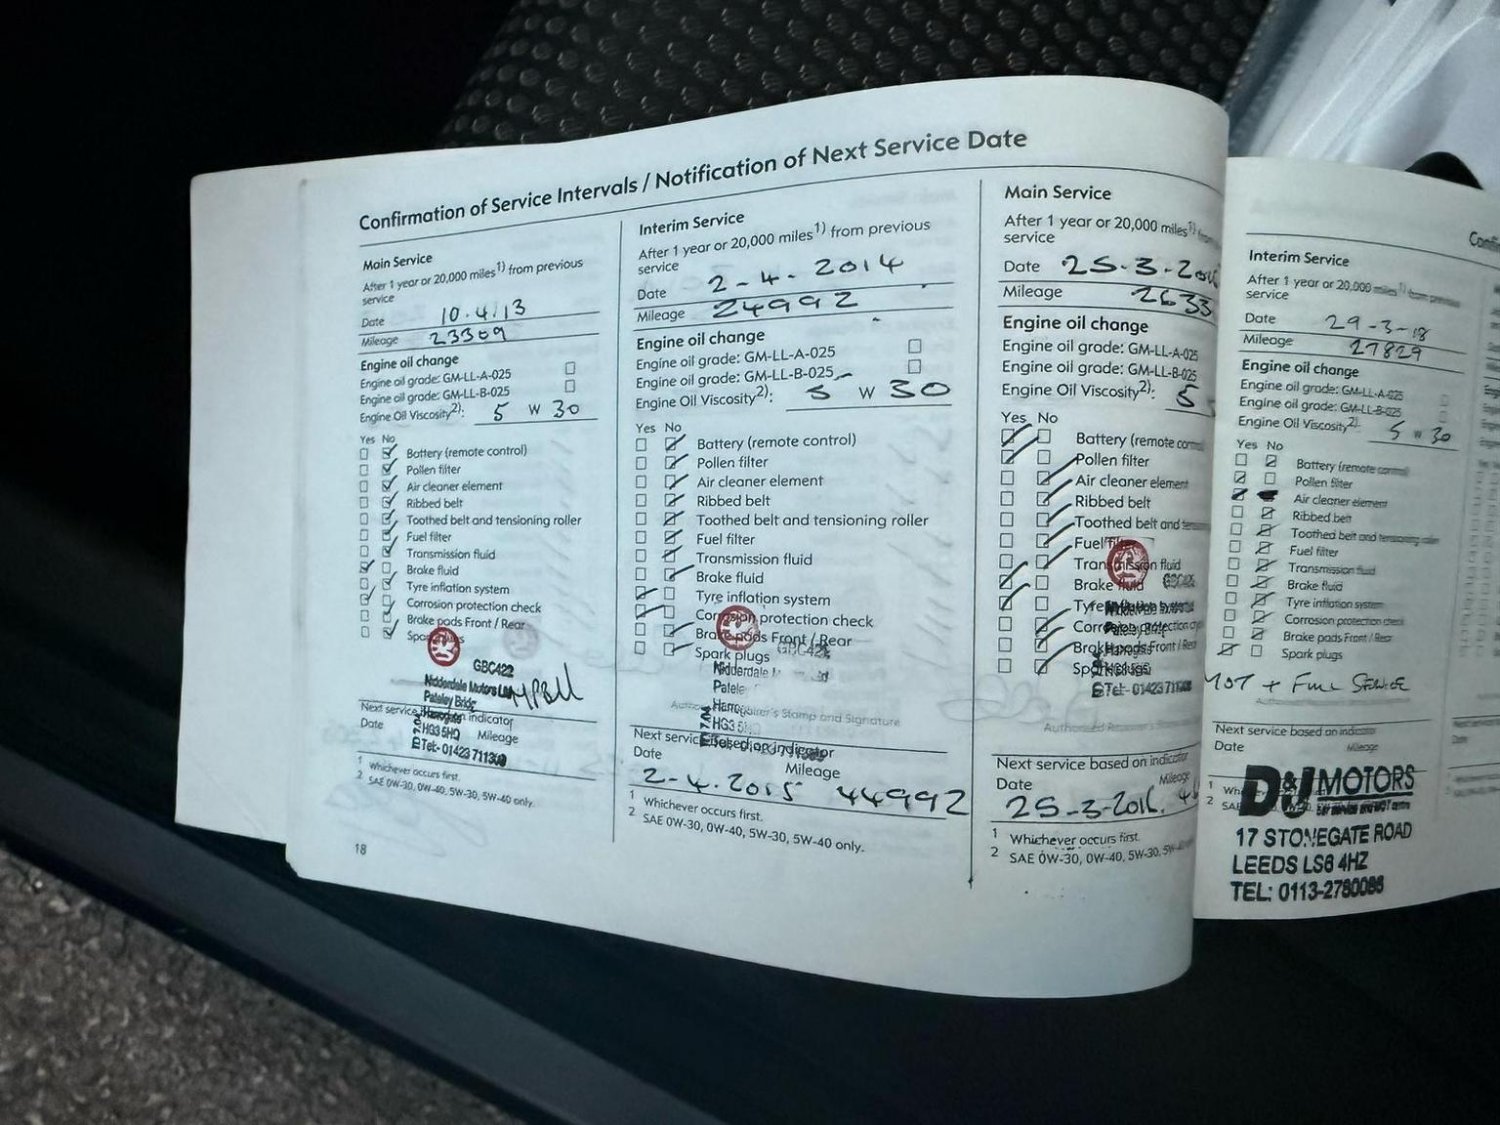 Confirmation of Service Intervals / Notification of Next Service Date
Main Service
After 1 year or 20,000 miles1) from previous
service
Date 10.4.13
Mileage 23309
Engine oil change
Engine oil grade: GM-LL-A-025
Engine oil grade: GM-LL-B-025
Engine Oil Viscosity2): 5 W 30
Yes No
Battery (remote control)
Pollen filter
Air cleaner element
Ribbed belt
Toothed belt and tensioning roller
Fuel filter
Transmission fluid
Brake fluid
Tyre inflation system
Corrosion protection check
Brake pads Front / Rear
GBC422
Nidderdale Motors Ltd
Pateley Bridg
Harrogate
HG3 5HQ
Tel:- 01423 711309
Next service based on indicator
Date Mileage
1 Whichever occurs first.
2 SAE 0W-30, 0W-40, 5W-30, 5W-40 only.
18
Interim Service
After 1 year or 20,000 miles1) from previous
service
Date 2-4-2014
Mileage 24992
Engine oil change
Engine oil grade: GM-LL-A-025
Engine oil grade: GM-LL-B-025
Engine Oil Viscosity2): 5 W 30
Yes No
Battery (remote control)
Pollen filter
Air cleaner element
Ribbed belt
Toothed belt and tensioning roller
Fuel filter
Transmission fluid
Brake fluid
Tyre inflation system
Corrosion protection check
Brake pads Front / Rear
Spark plugs
GBC422
Nidderdale
HG3
Stamp and Signature
Next service based on indicator
Date Mileage
2-4.2015 44992
1 Whichever occurs first.
2 SAE 0W-30, 0W-40, 5W-30, 5W-40 only.
Main Service
After 1 year or 20,000 miles1)
service
Date 25-3-201
Mileage 2633
Engine oil change
Engine oil grade: GM-LL-A-025
Engine oil grade: GM-LL-B-025
Engine Oil Viscosity2): 5
Yes No
Battery (remote
Pollen filter
Air cleaner element
Ribbed belt
Toothed belt and
Fuel filter
Transmission fluid
Brake fluid
Corrosion protection
Front / Rear
Spark plugs
Tel:- 01423 711
Next service based on indicator
Date Mileage
25-3-2016
1 Whichever occurs first.
2 SAE 0W-30, 0W-40, 5W-30,
Interim Service
After 1 year or 20,000 miles from previous
service
Date 29-3-18
Mileage 27829
Engine oil change
Engine oil grade: GM-LL-A-025
Engine oil grade: GM-LL-B-025
Engine Oil Viscosity2): 5 W 30
Yes No
Battery (remote control)
Pollen filter
Air cleaner element
Ribbed belt
Toothed belt and tensioning roller
Fuel filter
Transmission fluid
Brake fluid
Tyre inflation system
Corrosion protection check
Brake pads Front / Rear
Spark plugs
MOT + Full Service
Next service based on indicator
Date Mileage
D&J MOTORS
17 STONEGATE ROAD
LEEDS LS6 4HZ
TEL: 0113-2780086